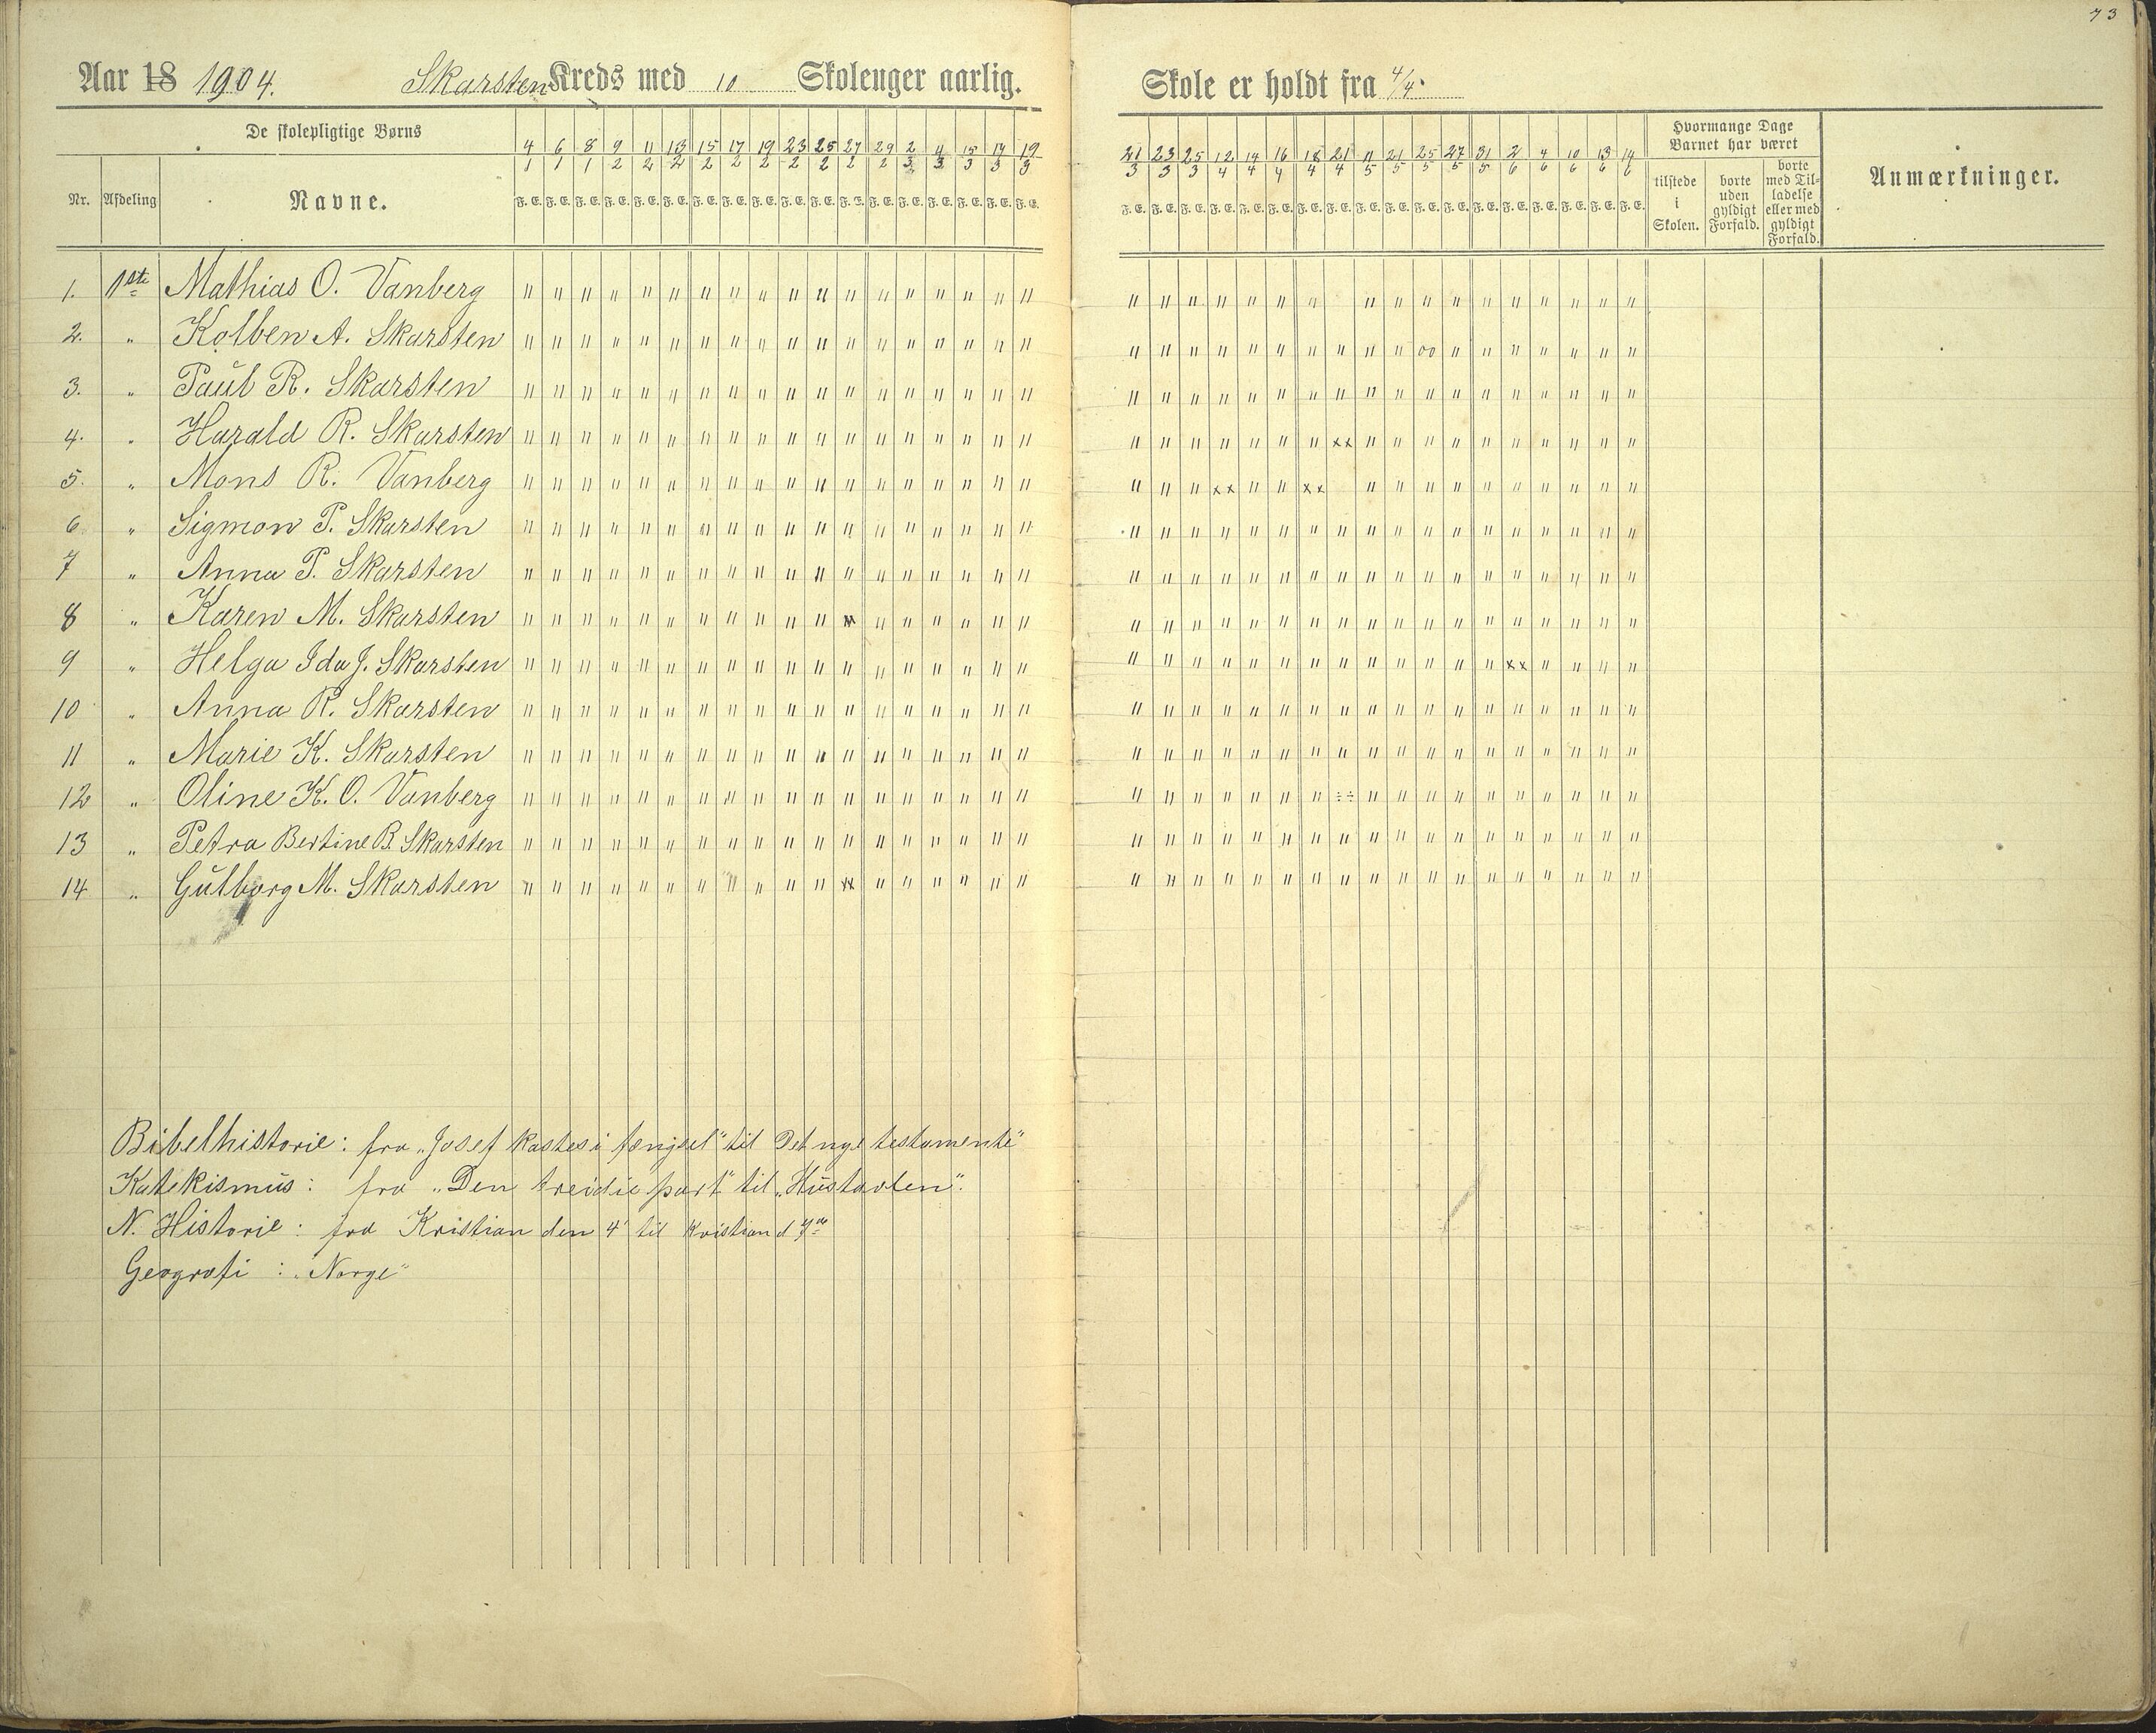 73
Aar 18 1904. Skarsten Kreds med 10 Skolenger aarlig. Skole er holdt fra 4/4.
De skolepligtige Børns
Nr. Afdeling Navne.
4/1 6/1 8/1 9/2 11/2 13/2 15/2 17/2 19/2 23/2 25/2 27/2 29/2 2/3 4/3 15/3 17/3 19/3
F. E. F. E. F. E. F. E. F. E. F. E. F. E. F. E. F. E. F. E. F. E. F. E. F. E. F. E. F. E. F. E. F. E. F. E.
21/3 23/3 25/3 12/4 14/4 16/4 18/4 21/4 11/5 21/5 25/5 27/5 31/5 2/6 4/6 10/6 13/6 14/6
F. E. F. E. F. E. F. E. F. E. F. E. F. E. F. E. F. E. F. E. F. E. F. E. F. E. F. E. F. E. F. E. F. E. F. E.
Hvormange Dage
Barnet har været
tilstede
i
Skolen.
borte
uden
gyldigt
Forfald.
borte
med Til-
ladelse
eller med
gyldigt
Forfald.
Anmærkninger.
1. 1ste Mathias O. Vanberg
2. " Kolben A. Skarsten
3. " Paul R. Skarsten
4. " Harald R. Skarsten
5. " Mons R. Vanberg
6 " Sigmon P. Skarsten
7 " Anna P. Skarsten
8 " Karen M. Skarsten
9 " Helga Ida J. Skarsten
10 " Anna R. Skarsten
11 " Marie K. Skarsten
12 " Oline K. O. Vanberg
13 " Petra Bertine B. Skarsten
14 " Gulborg M. Skarsten
Bibelhistorie: fra „Josef kastes i fengsel" til Det nye testamente"
Katekismus: fra „Den treidie part" til „Hustavlen".
N. Historie: fra Kristian den 4' til Kristian d 7de
Geografi: „Norge"